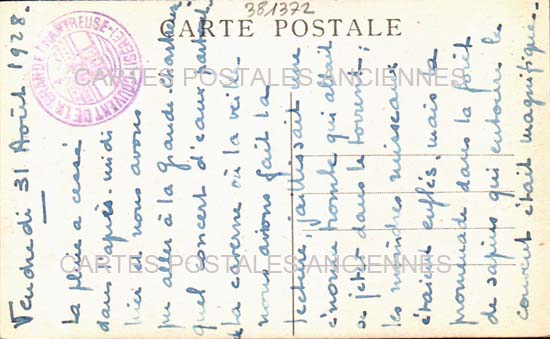 381372
CARTE POSTALE
COUVENT DE LA GRANDE CHARTREUSE (ISÈRE)
CARTES POSTALES ANCIENNES
CARTES POSTALES ANCIENNES
Vendredi 31 Août 1928.
La pluie a cessé
dans l'après-midi
hier et nous avons
pu aller à la grande-chartreuse
quel concert d'eaux partout
de la caverne où la veille
nous avions fait la
lecture, jaillissait une
énorme trombe qui allait
se jeter dans le torrent;
les moindres ruisseaux
étaient enflés. mais la
promenade dans la forêt
de sapins qui entoure le
couvent était magnifique.